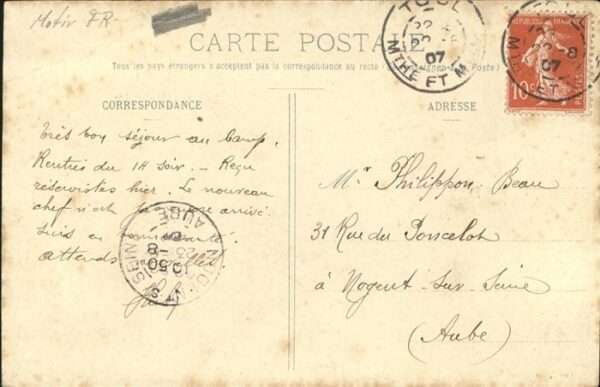 Motiv FR-
CARTE POSTALE
Tous les pays étrangers n'acceptent pas la correspondance au recto
CORRESPONDANCE
ADRESSE
TOUL
22
07
MTHE ET M
10
Très bon séjour au Camp.
Rentrés du 14 soir. — Reçu
réservistes hier. Le nouveau
chef n'est arrivé
Suis en bonne santé
attends
AUBE
23
8
10 50
S/SEINE
Mr Philippon Beau
31 Rue du Poncelot
à Nogent-sur-Seine
(Aube)